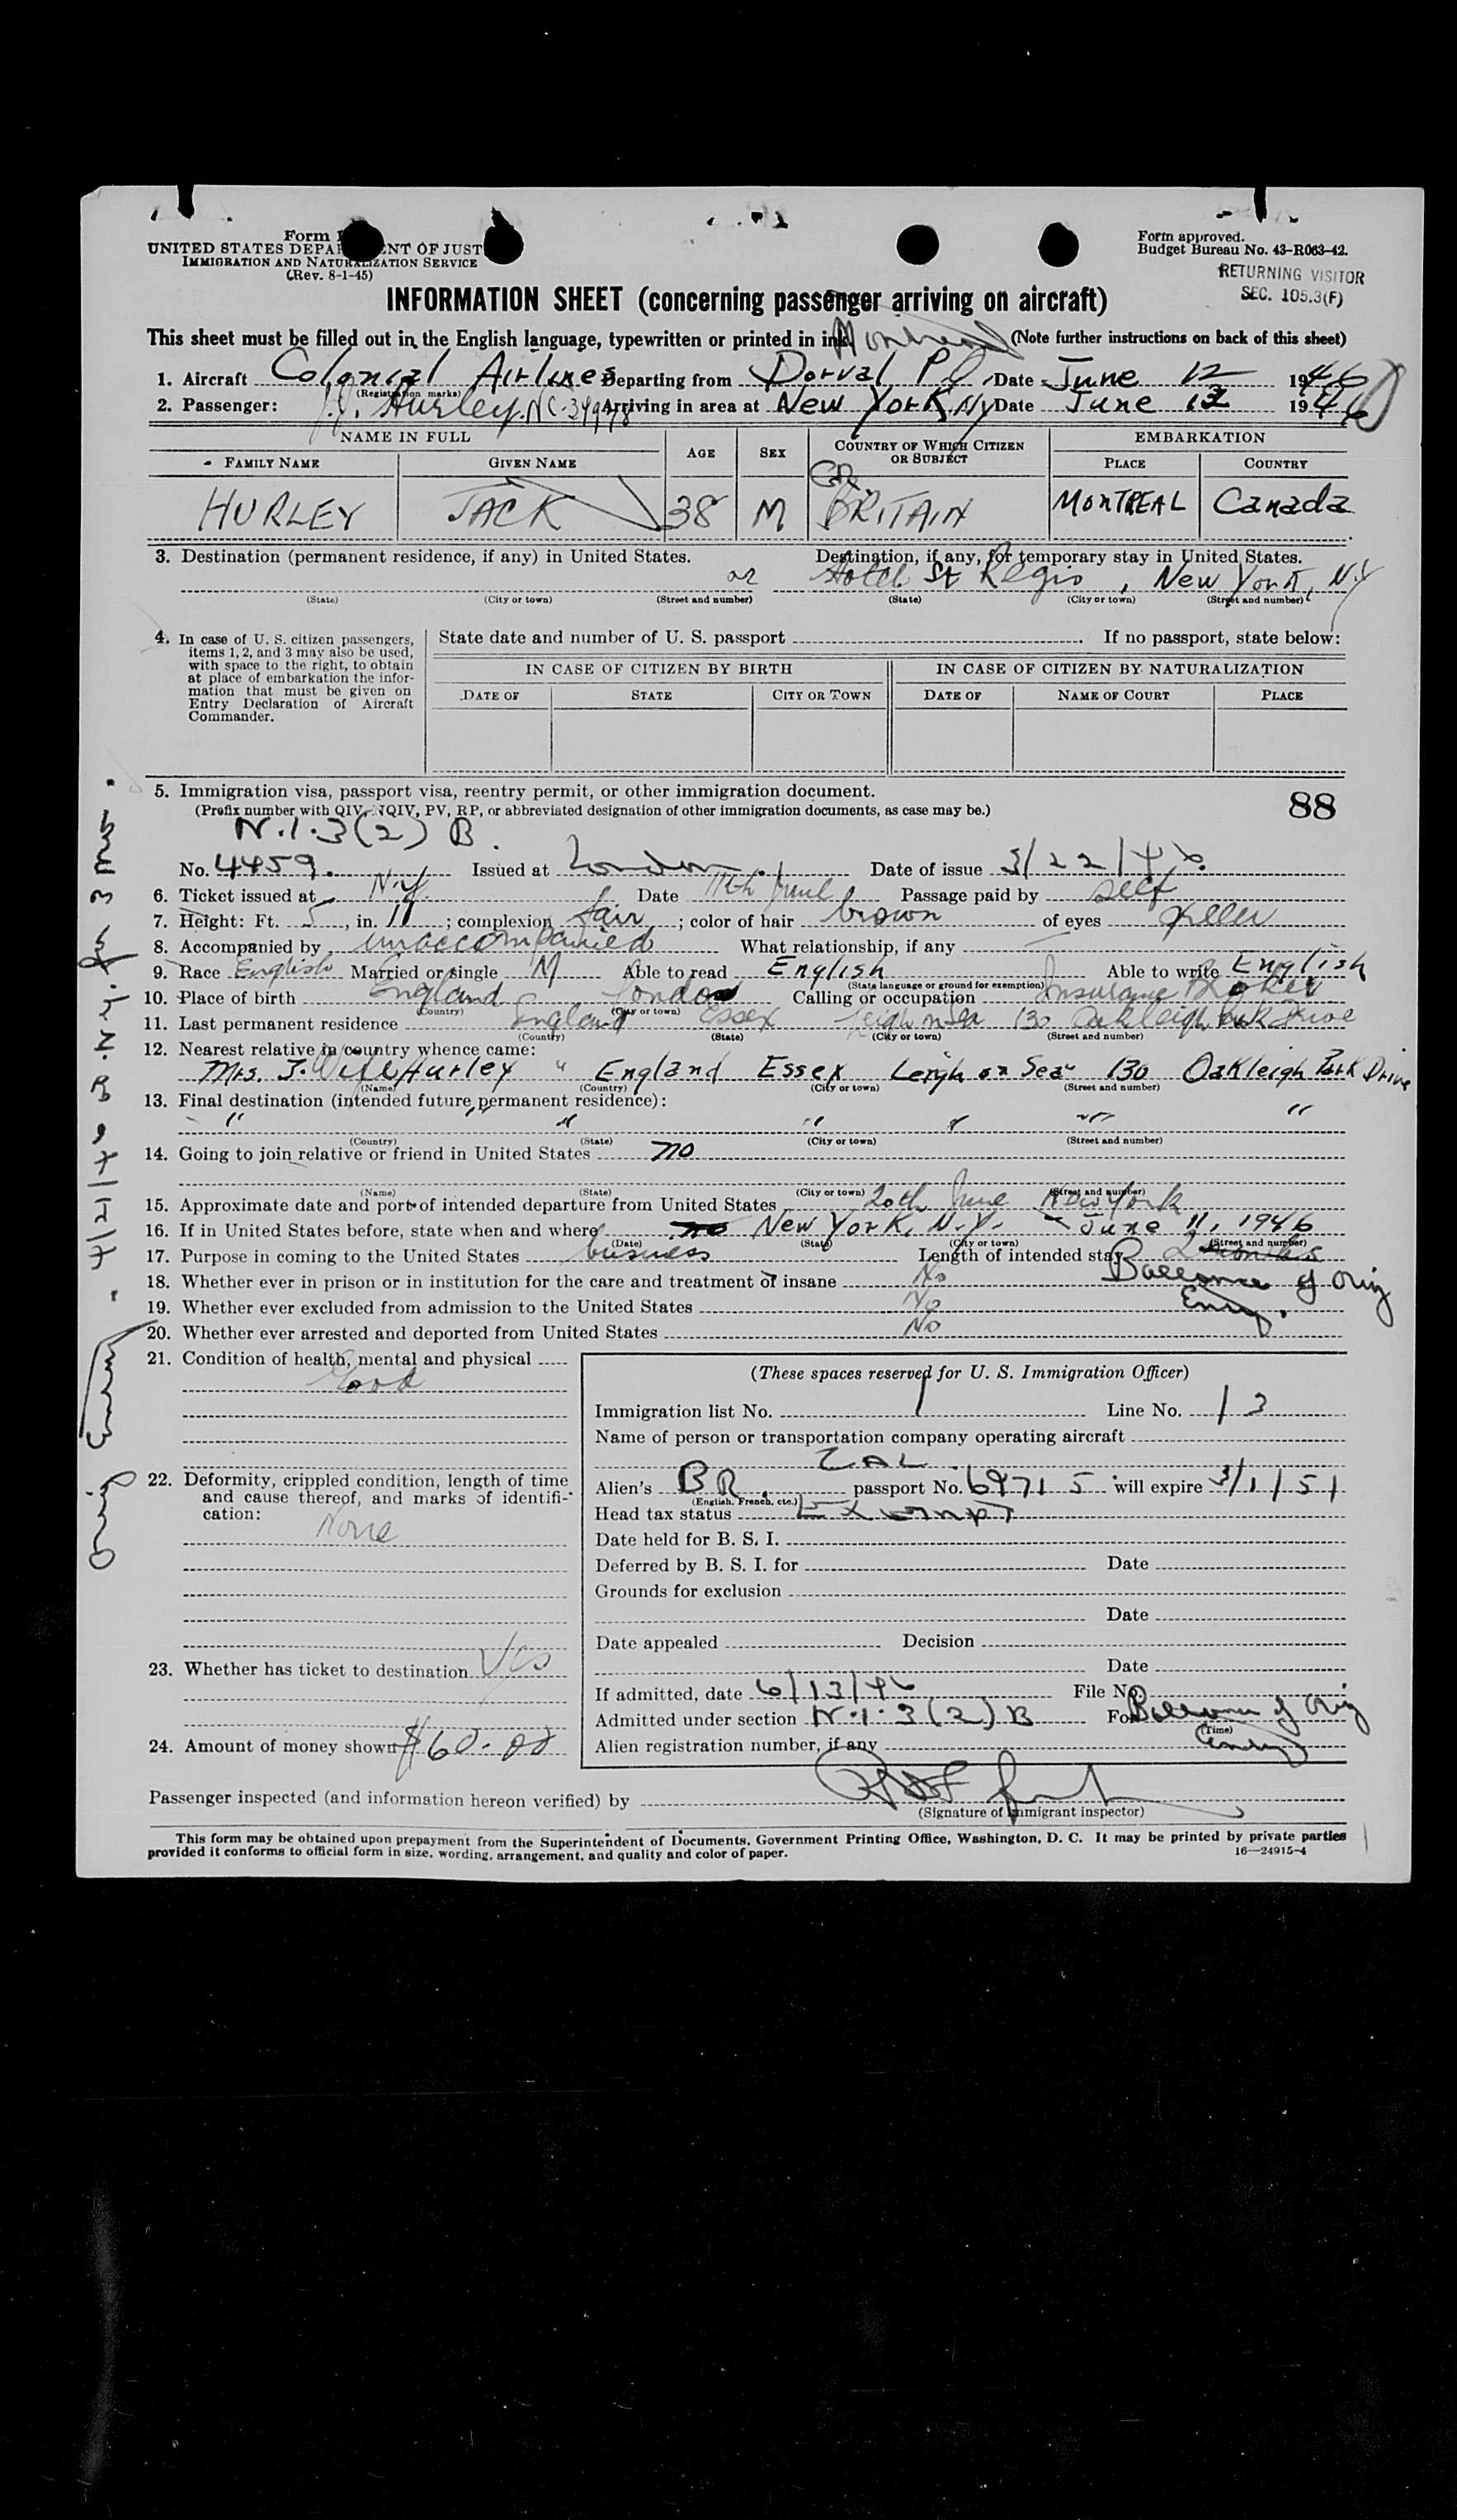 Form I
UNITED STATES DEPA NT OF JUST
IMMIGRATION AND NATURALIZATION SERVICE
(Rev. 8-1-45)
Form approved.
Budget Bureau No. 43-R063-42.
RETURNING VISITOR
SEC. 105.3(F)
INFORMATION SHEET (concerning passenger arriving on aircraft)
This sheet must be filled out in the English language, typewritten or printed in ink. Montreal (Note further instructions on back of this sheet)
1. Aircraft Colonial Airlines Departing from Dorval PQ, Date June 12 1946
(Registration marks)
2. Passenger: J. Hurley. NC-34998 Arriving in area at New York, NY Date June 13 1946
NAME IN FULL AGE SEX COUNTRY OF WHICH CITIZEN OR SUBJECT EMBARKATION
FAMILY NAME GIVEN NAME PLACE COUNTRY
HURLEY JACK 38 M GR. BRITAIN MONTREAL Canada
3. Destination (permanent residence, if any) in United States. Destination, if any, for temporary stay in United States.
or Hotel St Regis, New York, N.Y
(State) (City or town) (Street and number) (State) (City or town) (Street and number)
4. In case of U. S. citizen passengers, items 1, 2, and 3 may also be used, with space to the right, to obtain at place of embarkation the information that must be given on Entry Declaration of Aircraft Commander.
State date and number of U. S. passport . If no passport, state below:
IN CASE OF CITIZEN BY BIRTH IN CASE OF CITIZEN BY NATURALIZATION
DATE OF STATE CITY OR TOWN DATE OF NAME OF COURT PLACE
5. Immigration visa, passport visa, reentry permit, or other immigration document.
(Prefix number with QIV, NQIV, PV, RP, or abbreviated designation of other immigration documents, as case may be.)
88
N.I.3(2) B.
No. 4459. Issued at London. Date of issue 3/22/46.
6. Ticket issued at N.Y. Date 11th June Passage paid by self
7. Height: Ft. 5, in. 11; complexion fair; color of hair brown of eyes
8. Accompanied by unaccompanied What relationship, if any
9. Race English Married or single M Able to read English Able to write English
(State language or ground for exemption)
10. Place of birth England London Calling or occupation Insurance Broker
(Country) (City or town)
11. Last permanent residence England Essex Leigh on Sea 130 Oakleigh Park Drive
(Country) (State) (City or town) (Street and number)
12. Nearest relative in country whence came:
Mrs. J. Wife Hurley " England Essex Leigh on Sea 130 Oakleigh Park Drive
(Name) (Country) (City or town) (Street and number)
13. Final destination (intended future permanent residence):
" " " " " " "
(Country) (State) (City or town) (Street and number)
14. Going to join relative or friend in United States no
(Name) (State) (City or town) (Street and number)
15. Approximate date and port of intended departure from United States 20th June New York
16. If in United States before, state when and where no New York, N.Y. - June 11, 1946
(Date) (State) (City or town) (Street and number)
17. Purpose in coming to the United States business Length of intended stay 2 months
Ballance of Orig Entry.
18. Whether ever in prison or in institution for the care and treatment of insane No
19. Whether ever excluded from admission to the United States No
20. Whether ever arrested and deported from United States No
21. Condition of health, mental and physical
Good
22. Deformity, crippled condition, length of time and cause thereof, and marks of identification:
None
23. Whether has ticket to destination Yes
24. Amount of money shown $60.00
(These spaces reserved for U. S. Immigration Officer)
Immigration list No. 1 Line No. 13
Name of person or transportation company operating aircraft
CAL.
Alien's BR. passport No. 69715 will expire 3/1/51
(English, French, etc.)
Head tax status Exempt
Date held for B. S. I.
Deferred by B. S. I. for Date
Grounds for exclusion
Date
Date appealed Decision
Date
If admitted, date 6/13/46 File No.
Admitted under section N.I.3(2) B For Ballance of Orig Entry
(Time)
Alien registration number, if any
Passenger inspected (and information hereon verified) by
(Signature of immigrant inspector)
This form may be obtained upon prepayment from the Superintendent of Documents, Government Printing Office, Washington, D. C. It may be printed by private parties
provided it conforms to official form in size, wording, arrangement, and quality and color of paper. 16—24915-4